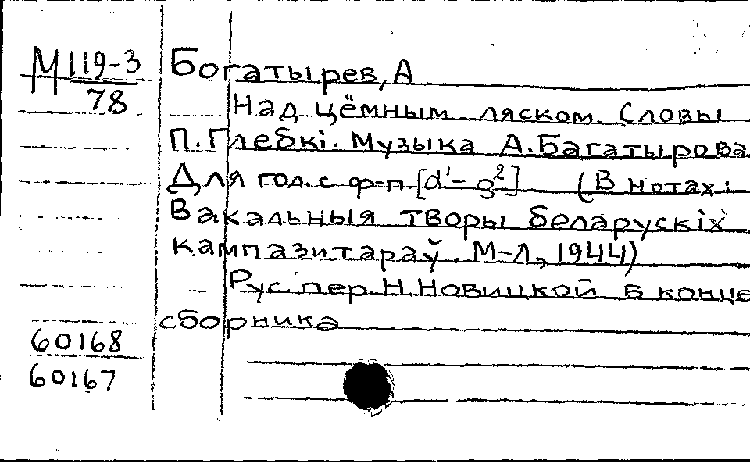 М 119-3
78
Богатырев, А
Над цёмным ляском. Словы
П. Глебкі. Музыка А. Багатырова
Для гол. с ф-п [d'-g²] (В нотах:
Вакальныя творы беларускіх
кампазитараў. М-Л, 1944)
Рус. пер. Н. Новицкой в конце
сборника
60168
60167